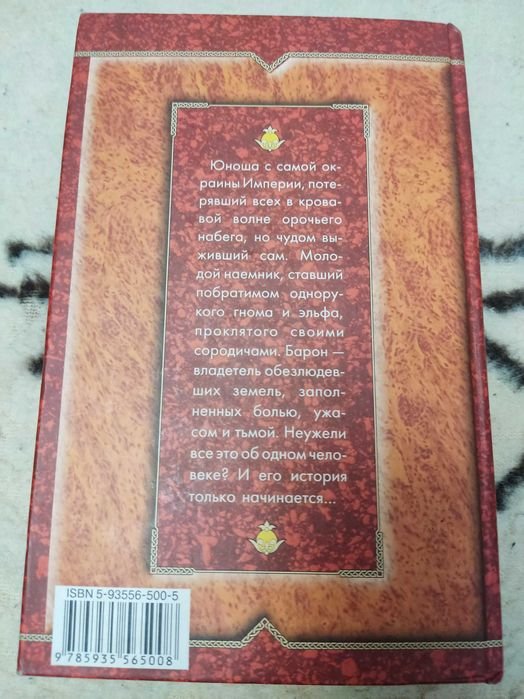 Юноша с самой ок-
раины Империи, поте-
рявший всех в крова-
вой волне орочьего
набега, но чудом вы-
живший сам. Моло-
дой наемник, ставший
побратимом одноруко-
кого гнома и эльфа,
проклятого своими
сородичами. Барон —
владетель обезлюдев-
ших земель, запол-
ненных болью, ужа-
сом и тьмой. Неужели
все это об одном чело-
веке? И его история
только начинается...
ISBN 5-93556-500-5
9 785935 565008